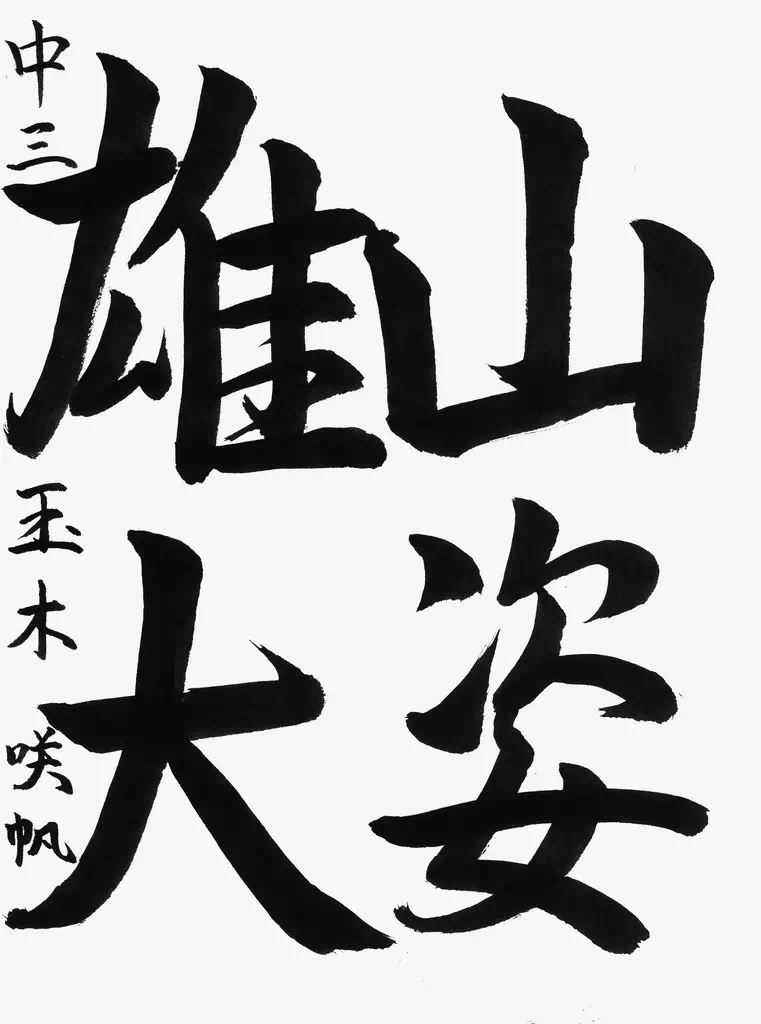 山姿
雄大
中三 玉木 咲帆